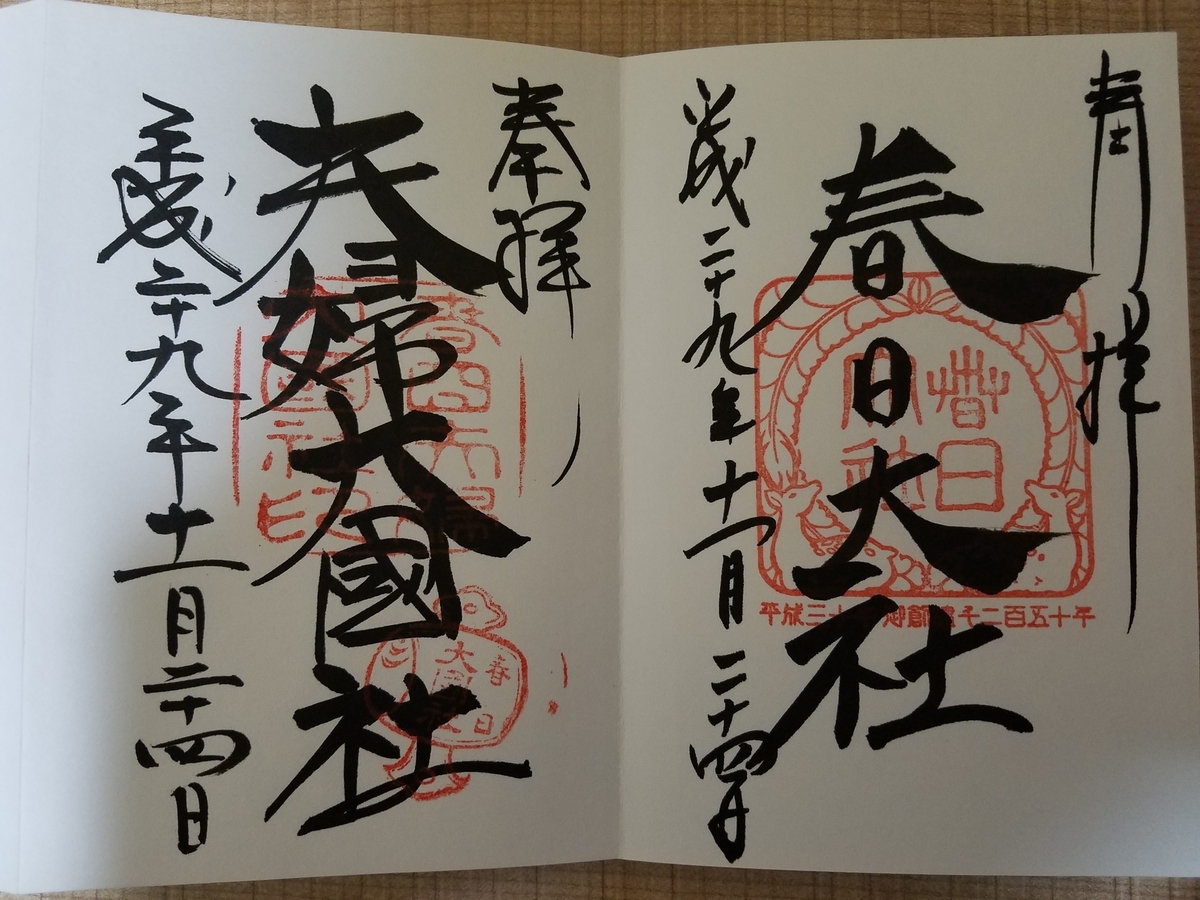 奉拝
春日大社
平成二十九年十一月二十四日
春日
大社
平成三十
御創建千二百五十年
奉拝
夫婦大國社
平成二十九年十一月二十四日
春日
大國